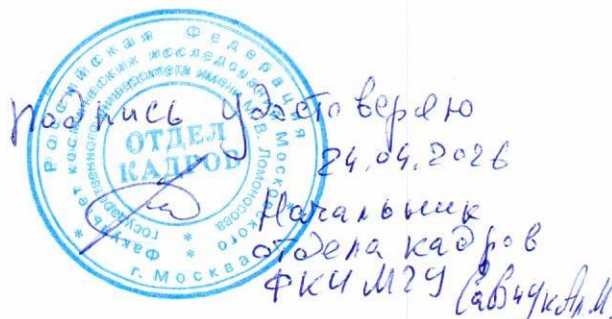 Российская Федерация
Факультет космических исследований Московского
государственного университета имени М.В. Ломоносова
г. Москва
ОТДЕЛ
КАДРОВ
подпись удостоверяю
24.04.2026
Начальник
отдела кадров
ФКИ МГУ Савчук